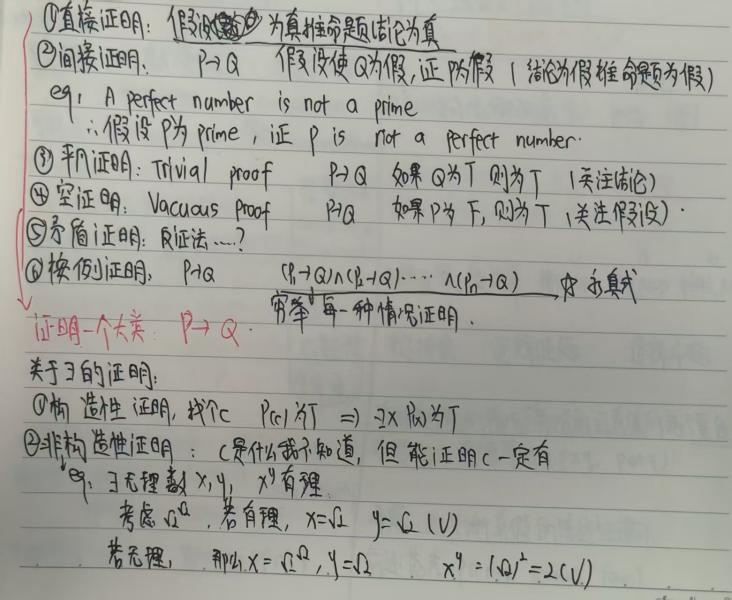 ①直接证明: 假设 为真推命题结论为真
②间接证明. P→Q 假设使Q为假,证P为假 (结论为假推命题为假)
eg, A perfect number is not a prime
∴假设P为prime, 证 P is not a perfect number.
③平凡证明: Trivial proof P→Q 如果Q为T 则为T (关注结论)
④空证明: Vacuous proof P→Q 如果P为F, 则为T (关注假设).
⑤矛盾证明: 反证法....?
⑥按例证明, P→Q (P₁→Q)∧(P₂→Q)····∧(Pn→Q) 永真式
穷举每一种情况证明.
证明一个大类: P→Q.
关于∃的证明:
①构造性证明, 找个c P(c)为T ⇒ ∃x P(x)为T
②非构造性证明: c是什么我不知道, 但能证明c一定有
eg, ∃无理数x,y, x^y有理.
考虑√2^√2, 若有理, x=√2 y=√2 (√)
若无理, 那么x=√2^√2, y=√2 x^y=(√2)²=2(√)